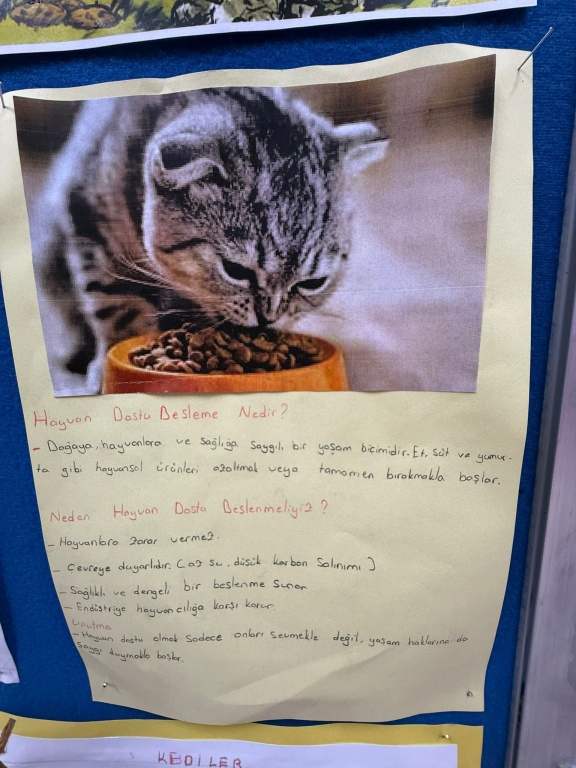 Hayvan Dostu Besleme Nedir?
- Doğaya, hayvanlara ve sağlığa saygılı bir yaşam biçimidir. Et, süt ve yumur-
ta gibi hayvansal ürünleri azaltmak veya tamamen bırakmakla başlar.
Neden Hayvan Dostu Beslenmeliyiz?
- Hayvanlara zarar vermez.
- Çevreye duyarlıdır. (az su, düşük karbon Salınımı)
- Sağlıklı ve dengeli bir beslenme Sunar
- Endüstriye hayvancılığa karşı korur.
Unutma
- Hayvan dostu olmak Sadece onları sevmekle değil, yaşam haklarına da
Saygı duymakla başlar.
KEDİLER